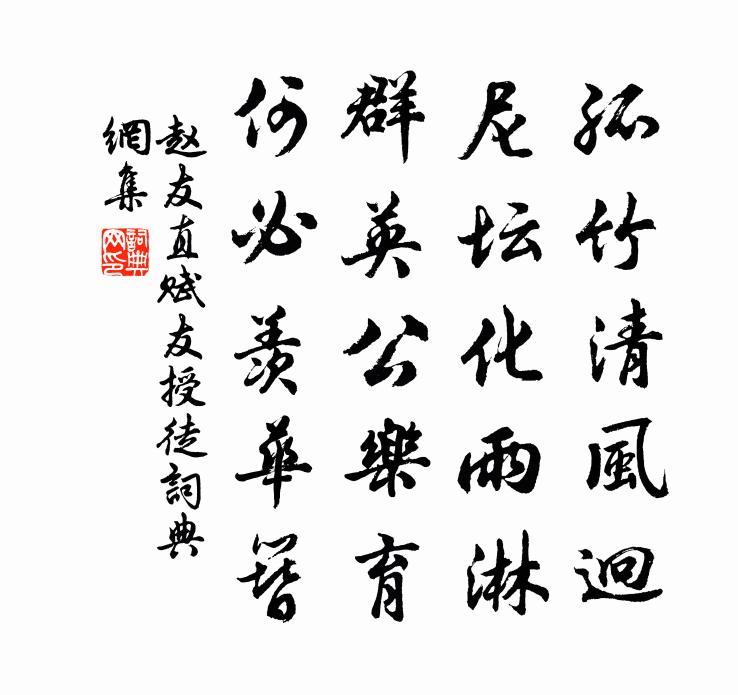 孤竹清風迥
尼坛化雨淋
群英公樂育
何必羨華簪
赵友直赋友授徒詞典
網集
詞典網印